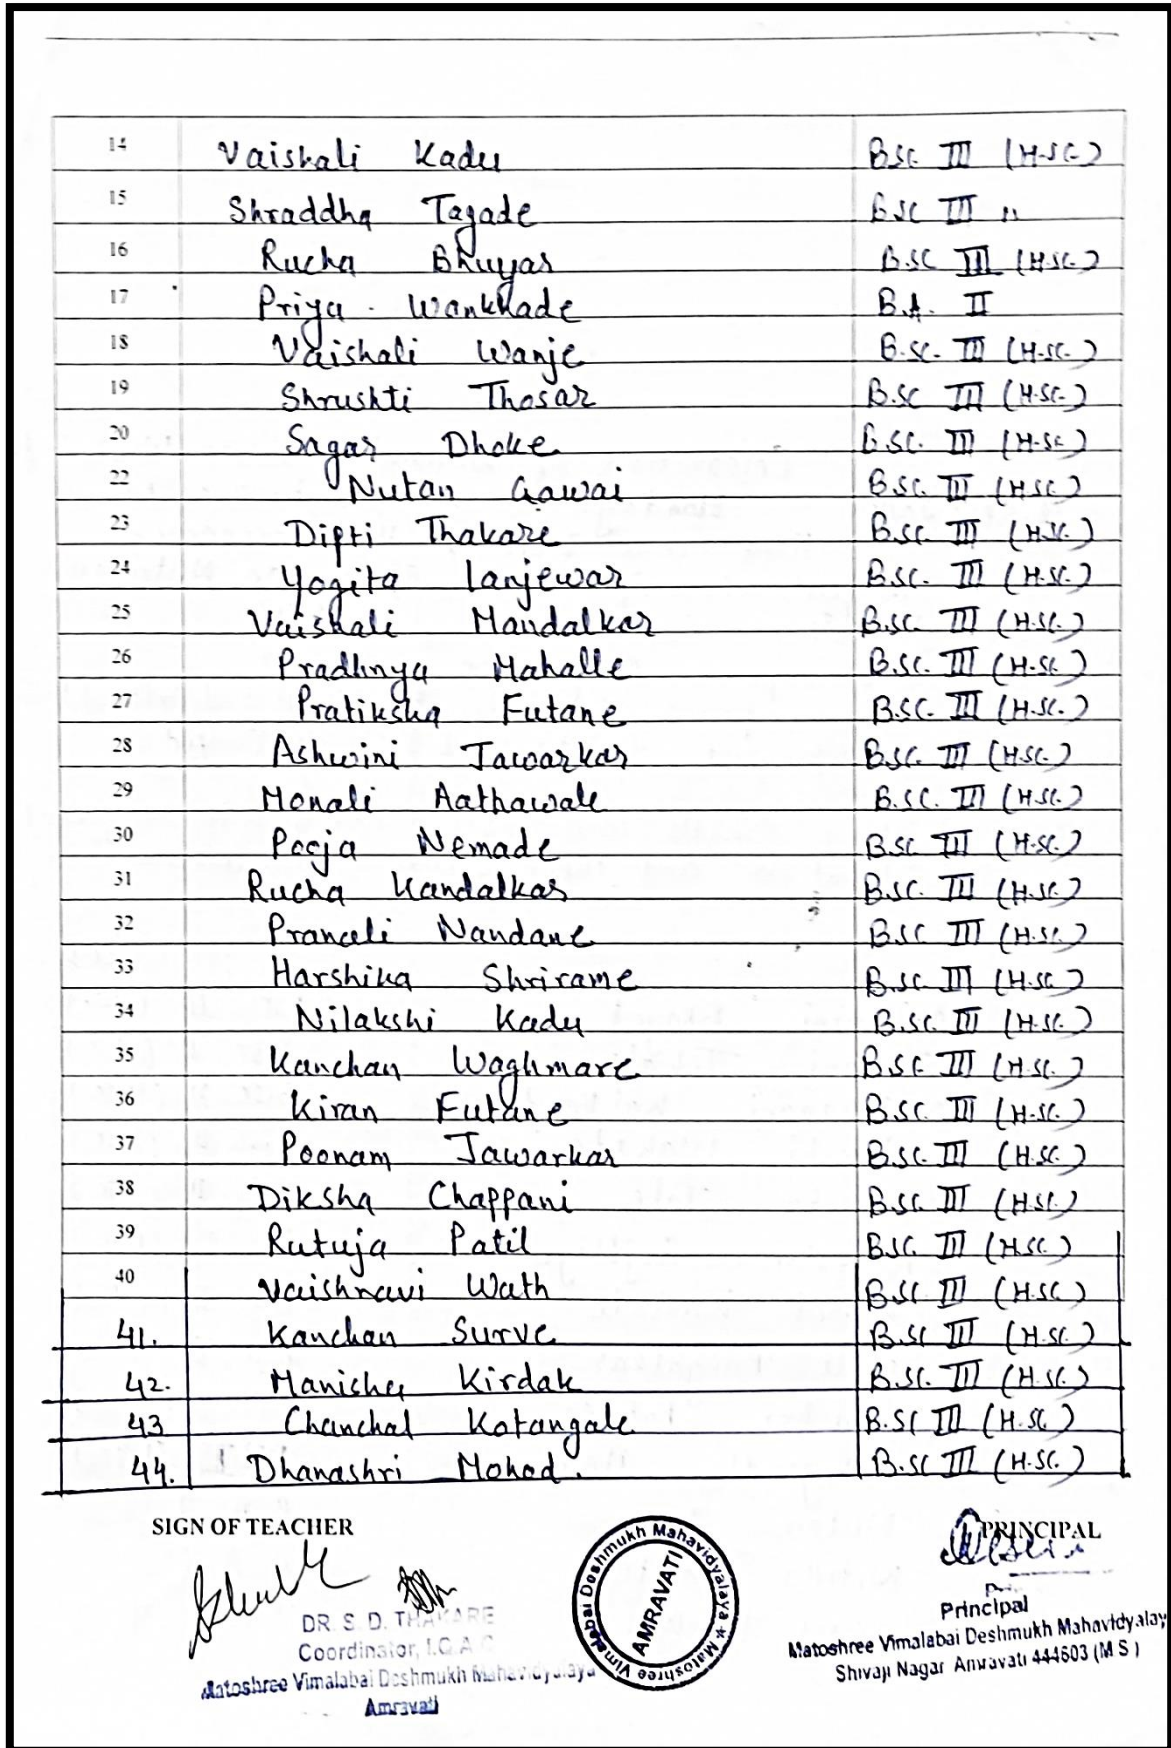 14 Vaishali Kadu B.Sc. III (H.Sc.)
15 Shraddha Tayade B.Sc III "
16 Rucha Bhuyar B.Sc III (H.Sc.)
17 Priya Wankhade B.A. II
18 Vaishali Wanje B.Sc. III (H.Sc.)
19 Shrushti Thosar B.Sc III (H.Sc.)
20 Sagar Dhoke B.Sc. III (H.Sc.)
22 Nutan Gawai B.Sc. III (H.Sc.)
23 Dipti Thakare B.Sc. III (H.Sc.)
24 Yogita Lanjewar B.Sc. III (H.Sc.)
25 Vaishali Mandalkar B.Sc. III (H.Sc.)
26 Pradhnya Mahalle B.Sc. III (H.Sc.)
27 Pratiksha Futane B.Sc. III (H.Sc.)
28 Ashwini Jawarkar B.Sc. III (H.Sc.)
29 Monali Aathawale B.Sc. III (H.Sc.)
30 Pooja Nemade B.Sc III (H.Sc.)
31 Rucha Kandalkar B.Sc. III (H.Sc.)
32 Pranali Nandane B.Sc III (H.Sc.)
33 Harshika Shrirame B.Sc III (H.Sc.)
34 Nilakshi Kadu B.Sc. III (H.Sc.)
35 Kanchan Waghmare B.Sc III (H.Sc.)
36 Kiran Futane B.Sc. III (H.Sc.)
37 Poonam Jawarkar B.Sc. III (H.Sc.)
38 Diksha Chappani B.Sc. III (H.Sc.)
39 Rutuja Patil B.Sc. III (H.Sc.)
40 Vaishnavi Wath B.Sc. III (H.Sc.)
41. Kanchan Surve B.Sc III (H.Sc.)
42. Manisha Kirdak B.Sc. III (H.Sc.)
43 Chanchal Kotangale B.Sc III (H.Sc.)
44. Dhanashri Mohod. B.Sc III (H.Sc.)
SIGN OF TEACHER
PRINCIPAL
DR. S. D. THAKARE
Coordinator, I.Q.A.C
Matoshree Vimalabai Deshmukh Mahavidyalaya
Amravati
Matoshree Vimalabai Deshmukh Mahavidyalaya *
AMRAVATI
Principal
Matoshree Vimalabai Deshmukh Mahavidyalay
Shivaji Nagar Amravati 444603 (M S )